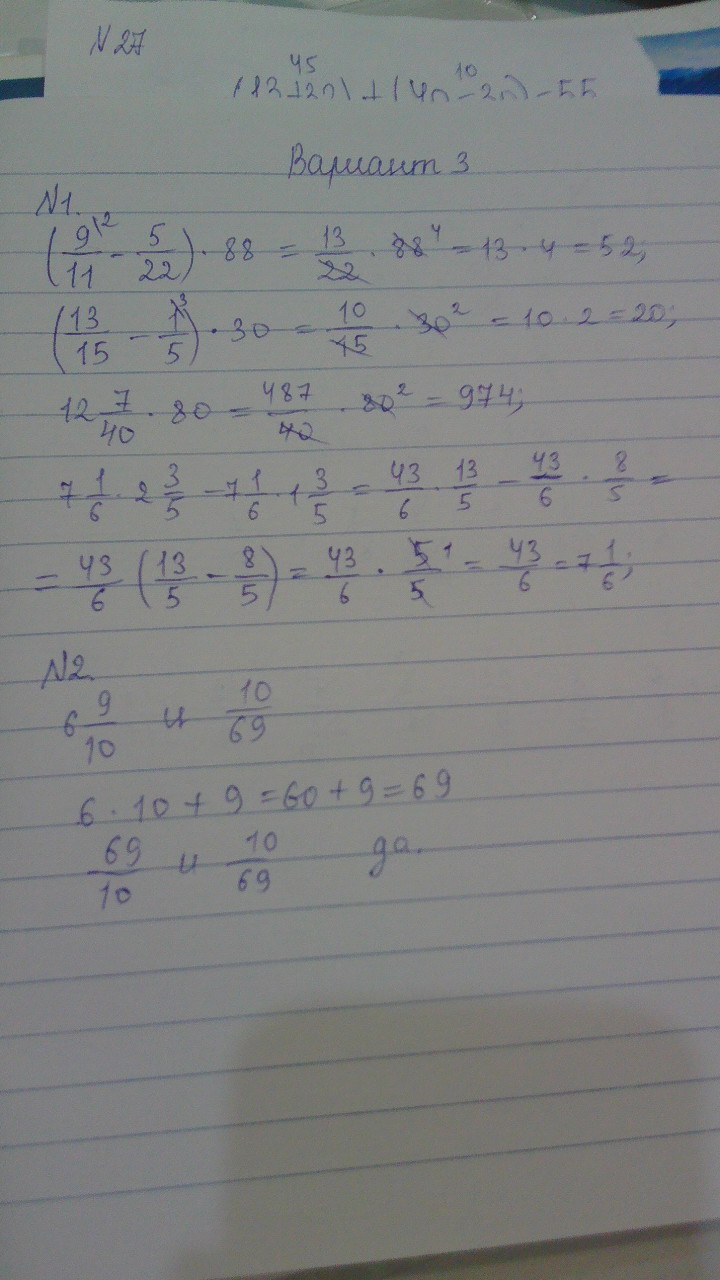 N27
45 10
Вариант 3
N1.
(9\2/11 - 5/22) · 88 = 13/22 · 88 4 = 13 · 4 = 52;
(13/15 - 1\3/5) · 30 = 10/15 · 30 2 = 10 · 2 = 20;
12 7/40 · 80 = 487/40 · 80 2 = 974;
7 1/6 · 2 3/5 - 7 1/6 · 1 3/5 = 43/6 · 13/5 - 43/6 · 8/5 =
= 43/6 (13/5 - 8/5) = 43/6 · 5/5 1 = 43/6 = 7 1/6;
N2.
6 9/10 и 10/69
6 · 10 + 9 = 60 + 9 = 69
69/10 и 10/69 да.